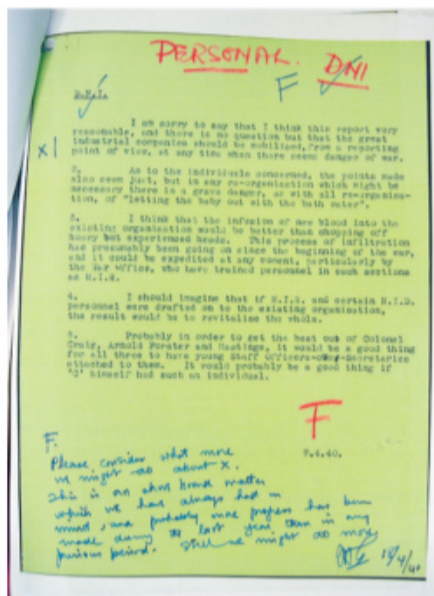 PERSONAL. DNI
F
D.N.I.
I am sorry to say that I think this report very
reasonable, and there is no question but that the great
X1
industrial companies should be mobilised, from a reporting
point of view, at any time when there seems danger of war.
2. As to the individuals concerned, the points made
also seem just, but in any re-organisation which might be
necessary there is a grave danger, as with all re-organisa-
tion, of "letting the baby out with the bath water".
3. I think that the infusion of new blood into the
existing organisation would be better than chopping off
hoary but experienced heads. This process of infiltration
has presumably been going on since the beginning of the war,
and it could be expedited at any moment, particularly by
the War Office, who have trained personnel in such sections
as M.I.R.
4. I should imagine that if M.I.R. and certain N.I.D.
personnel were drafted on to the existing organisation,
the result would be to revitalise the whole.
5. Probably in order to get the best out of Colonel
Craig, Arnold Forster and Hastings, it would be a good thing
for all three to have young Staff Officers-Secretaries
attached to them. It would probably be a good thing if
'C' himself had such an individual.
F
7.4.40.
F.
Please consider what more
we might do about X.
This is an matter
which we have always had in
mind, and probably more progress has been
made during the last year than in any
previous period. Still we might do more
/4/40